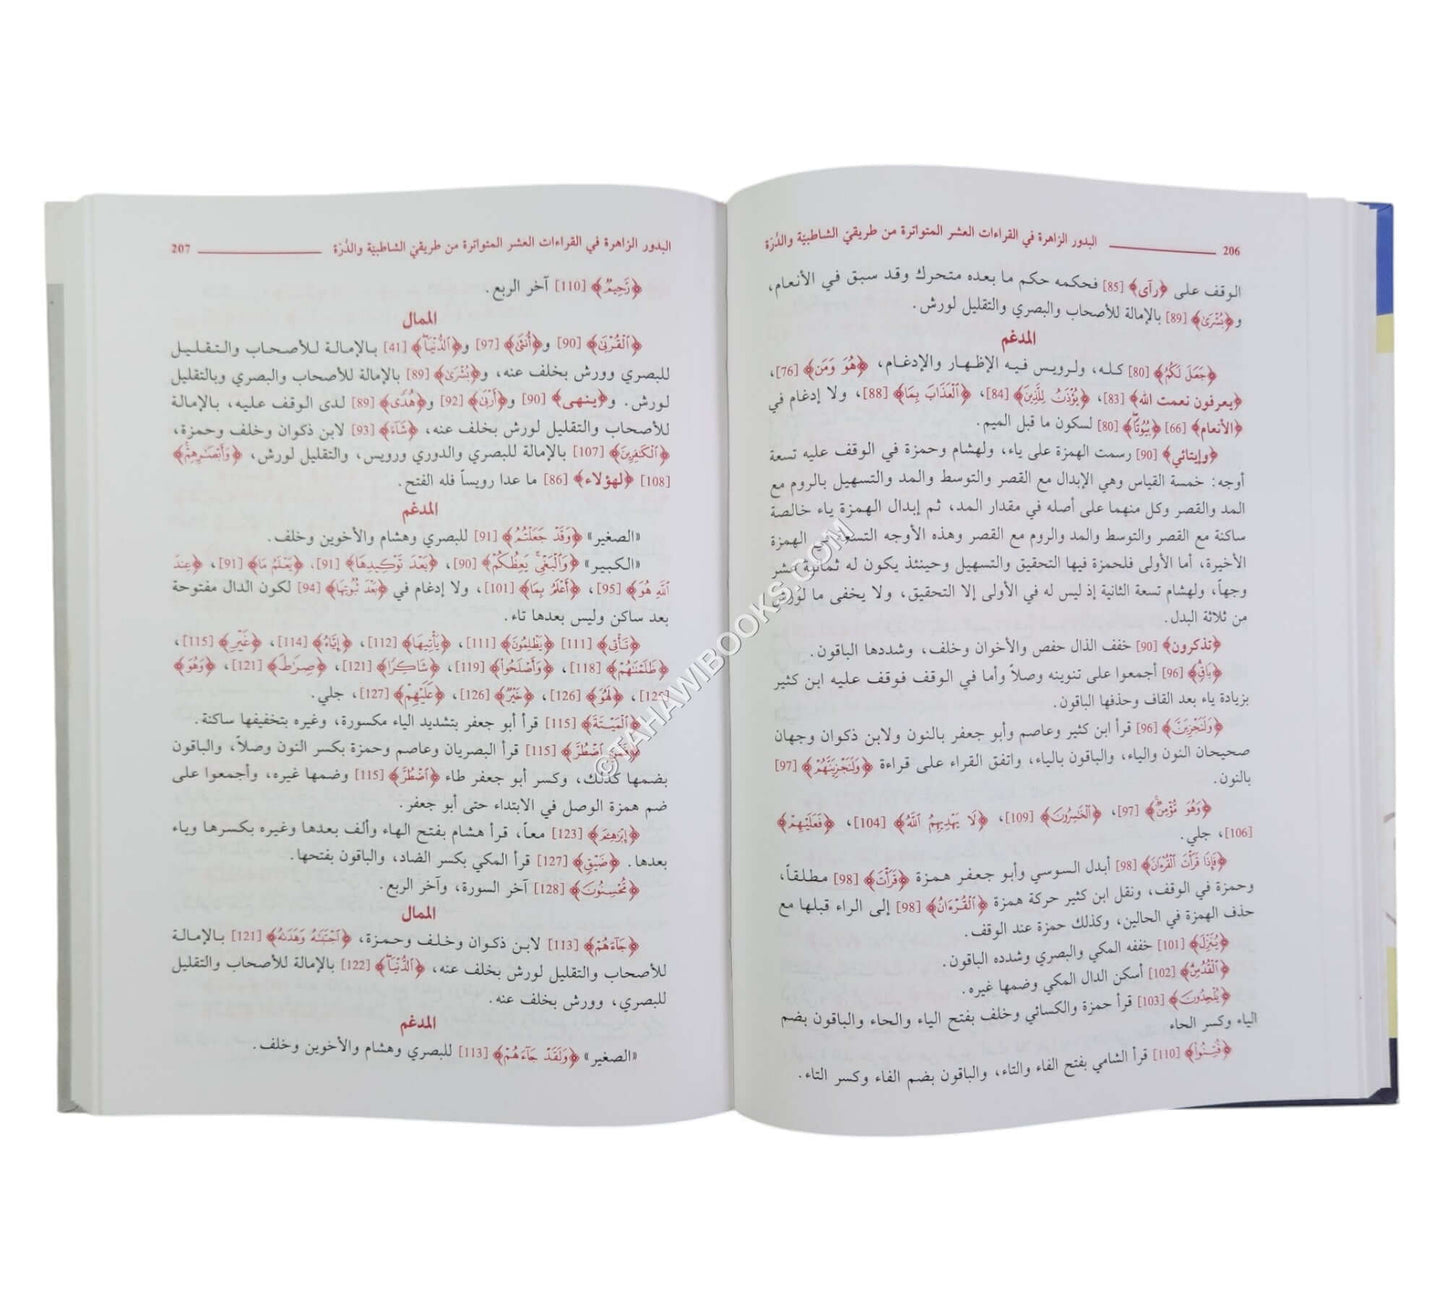 206 البدور الزاهرة في القراءات العشر المتواترة من طريقي الشاطبية والدُرّة
الوقف على ﴿رأى﴾ [85] فحكمه حكم ما بعده متحرك وقد سبق في الأنعام،
و﴿بُشْرَىٰ﴾ [89] بالإمالة للأصحاب والبصري والتقليل لورش.
المدغم
﴿جَعَلَ لَكُم﴾ [80] كله، ولرويس فيه الإظهار والإدغام، ﴿هُوَ وَمَن﴾ [76]،
﴿يعرفون نعمت الله﴾ [83]، ﴿يُؤْذَنُ لِلَّذِينَ﴾ [84]، ﴿الْعَذَابَ بِمَا﴾ [88]، ولا إدغام في
﴿الأنعام﴾ [66] ﴿بُيُوتًا﴾ [80] لسكون ما قبل الميم.
﴿وإيتائي﴾ [90] رسمت الهمزة على ياء، ولهشام وحمزة في الوقف عليه تسعة
أوجه: خمسة القياس وهي الإبدال مع القصر والتوسط والمد والتسهيل بالروم مع
المد والقصر وكل منهما على أصله في مقدار المد، ثم إبدال الهمزة ياء خالصة
ساكنة مع القصر والتوسط والمد والروم مع القصر وهذه الأوجه التسعة في الهمزة
الأخيرة، أما الأولى فلحمزة فيها التحقيق والتسهيل وحينئذ يكون له ثمانية عشر
وجهاً، ولهشام تسعة الثانية إذ ليس له في الأولى إلا التحقيق، ولا يخفى ما لورش
من ثلاثة البدل.
﴿تذكرون﴾ [90] خفف الذال حفص والأخوان وخلف، وشددها الباقون.
﴿بَاقٍ﴾ [96] أجمعوا على تنوينه وصلاً وأما في الوقف فوقف عليه ابن كثير
بزيادة ياء بعد القاف وحذفها الباقون.
﴿وَلَنَجْزِيَنَّ﴾ [96] قرأ ابن كثير وعاصم وأبو جعفر بالنون ولابن ذكوان وجهان
صحيحان النون والياء، والباقون بالياء، واتفق القراء على قراءة ﴿وَلَنَجْزِيَنَّهُمْ﴾ [97]
بالنون.
﴿وَهُوَ مُؤْمِنٌ﴾ [97]، ﴿الْخَاسِرُونَ﴾ [109]، ﴿لَا يَهْدِيهِمُ اللَّهُ﴾ [104]، ﴿فَعَلَيْهِمْ﴾
[106]، جلي.
﴿فَإِذَا قَرَأْتَ الْقُرْءَانَ﴾ [98] أبدل السوسي وأبو جعفر همزة ﴿قَرَأْتَ﴾ [98] مطلقاً،
وحمزة في الوقف، ونقل ابن كثير حركة همزة ﴿الْقُرْءَانَ﴾ [98] إلى الراء قبلها مع
حذف الهمزة في الحالين، وكذلك حمزة عند الوقف.
﴿يُنَزِّلُ﴾ [101] خففه المكي والبصري وشدده الباقون.
﴿الْقُدُسِ﴾ [102] أسكن الدال المكي وضمها غيره.
﴿يُلْحِدُونَ﴾ [103] قرأ حمزة والكسائي وخلف بفتح الياء والحاء والباقون بضم
الياء وكسر الحاء
﴿فُتِنُوا﴾ [110] قرأ الشامي بفتح الفاء والتاء، والباقون بضم الفاء وكسر التاء.
البدور الزاهرة في القراءات العشر المتواترة من طريقي الشاطبية والدُرّة 207
﴿رَّحِيمٌ﴾ [110] آخر الربع.
الممال
﴿الْقُرْبَىٰ﴾ [90] و﴿أُنثَىٰ﴾ [97] و﴿الدُّنْيَا﴾ [41] بالإمالة للأصحاب والتقليل
للبصري وورش بخلف عنه، و﴿بُشْرَىٰ﴾ [89] بالإمالة للأصحاب والبصري وبالتقليل
لورش. و﴿ينهى﴾ [90] و﴿أَرْبَىٰ﴾ [92] و﴿هُدًى﴾ [89] لدى الوقف عليه، بالإمالة
للأصحاب والتقليل لورش بخلف عنه، ﴿شَاءَ﴾ [93] لابن ذكوان وخلف وحمزة،
﴿الْكَافِرِينَ﴾ [107] بالإمالة للبصري والدوري ورويس، والتقليل لورش، ﴿وَأَبْصَارِهِمْ﴾
[108] ﴿لهؤلاء﴾ [86] ما عدا رويساً فله الفتح.
المدغم
«الصغير» ﴿وَقَدْ جَعَلْتُمُ﴾ [91] للبصري وهشام والأخوين وخلف.
«الكبير» ﴿وَالْبَغْيِ يَعِظُكُمْ﴾ [90]، ﴿بَعْدَ تَوْكِيدِهَا﴾ [91]، ﴿يَعْلَمُ مَا﴾ [91]، ﴿عِندَ
اللَّهِ هُوَ﴾ [95]، ﴿أَعْلَمُ بِمَا﴾ [101]، ولا إدغام في ﴿بَعْدَ ثُبُوتِهَا﴾ [94] لكون الدال مفتوحة
بعد ساكن وليس بعدها تاء.
﴿تَأْتِي﴾ [111] ﴿يُظْلَمُونَ﴾ [111]، ﴿يَأْتِيهَا﴾ [112]، ﴿إِيَّاهُ﴾ [114]، ﴿غَيْرَ﴾ [115]،
﴿ظَلَمْنَاهُمْ﴾ [118]، ﴿وَأَصْلَحُوا﴾ [119]، ﴿شَاكِرًا﴾ [121]، ﴿صِرَاطٍ﴾ [121]، ﴿وَهُوَ﴾
[125]، ﴿لَهُوَ﴾ [126]، ﴿خَيْرٌ﴾ [126]، ﴿عَلَيْهِمْ﴾ [127]، جلي.
﴿الْمَيْتَةَ﴾ [115] قرأ أبو جعفر بتشديد الياء مكسورة، وغيره بتخفيفها ساكنة.
﴿فَمَنِ اضْطُرَّ﴾ [115] قرأ البصريان وعاصم وحمزة بكسر النون وصلاً، والباقون
بضمها كذلك، وكسر أبو جعفر طاء ﴿اضْطُرَّ﴾ [115] وضمها غيره، وأجمعوا على
ضم همزة الوصل في الابتداء حتى أبو جعفر.
﴿إِبْرَاهِيمَ﴾ [123] معاً، قرأ هشام بفتح الهاء وألف بعدها وغيره بكسرها وياء
بعدها. ﴿ضَيْقٍ﴾ [127] قرأ المكي بكسر الضاد، والباقون بفتحها.
﴿مُّحْسِنُونَ﴾ [128] آخر السورة، وآخر الربع.
الممال
﴿جَاءَهُمْ﴾ [113] لابن ذكوان وخلف وحمزة، ﴿اجْتَبَاهُ وَهَدَاهُ﴾ [121] بالإمالة
للأصحاب والتقليل لورش بخلف عنه، ﴿الدُّنْيَا﴾ [122] بالإمالة للأصحاب والتقليل
للبصري، وورش بخلف عنه.
المدغم
«الصغير» ﴿وَلَقَدْ جَاءَهُمْ﴾ [113] للبصري وهشام والأخوين وخلف.
©TAHAWIBOOKS.COM